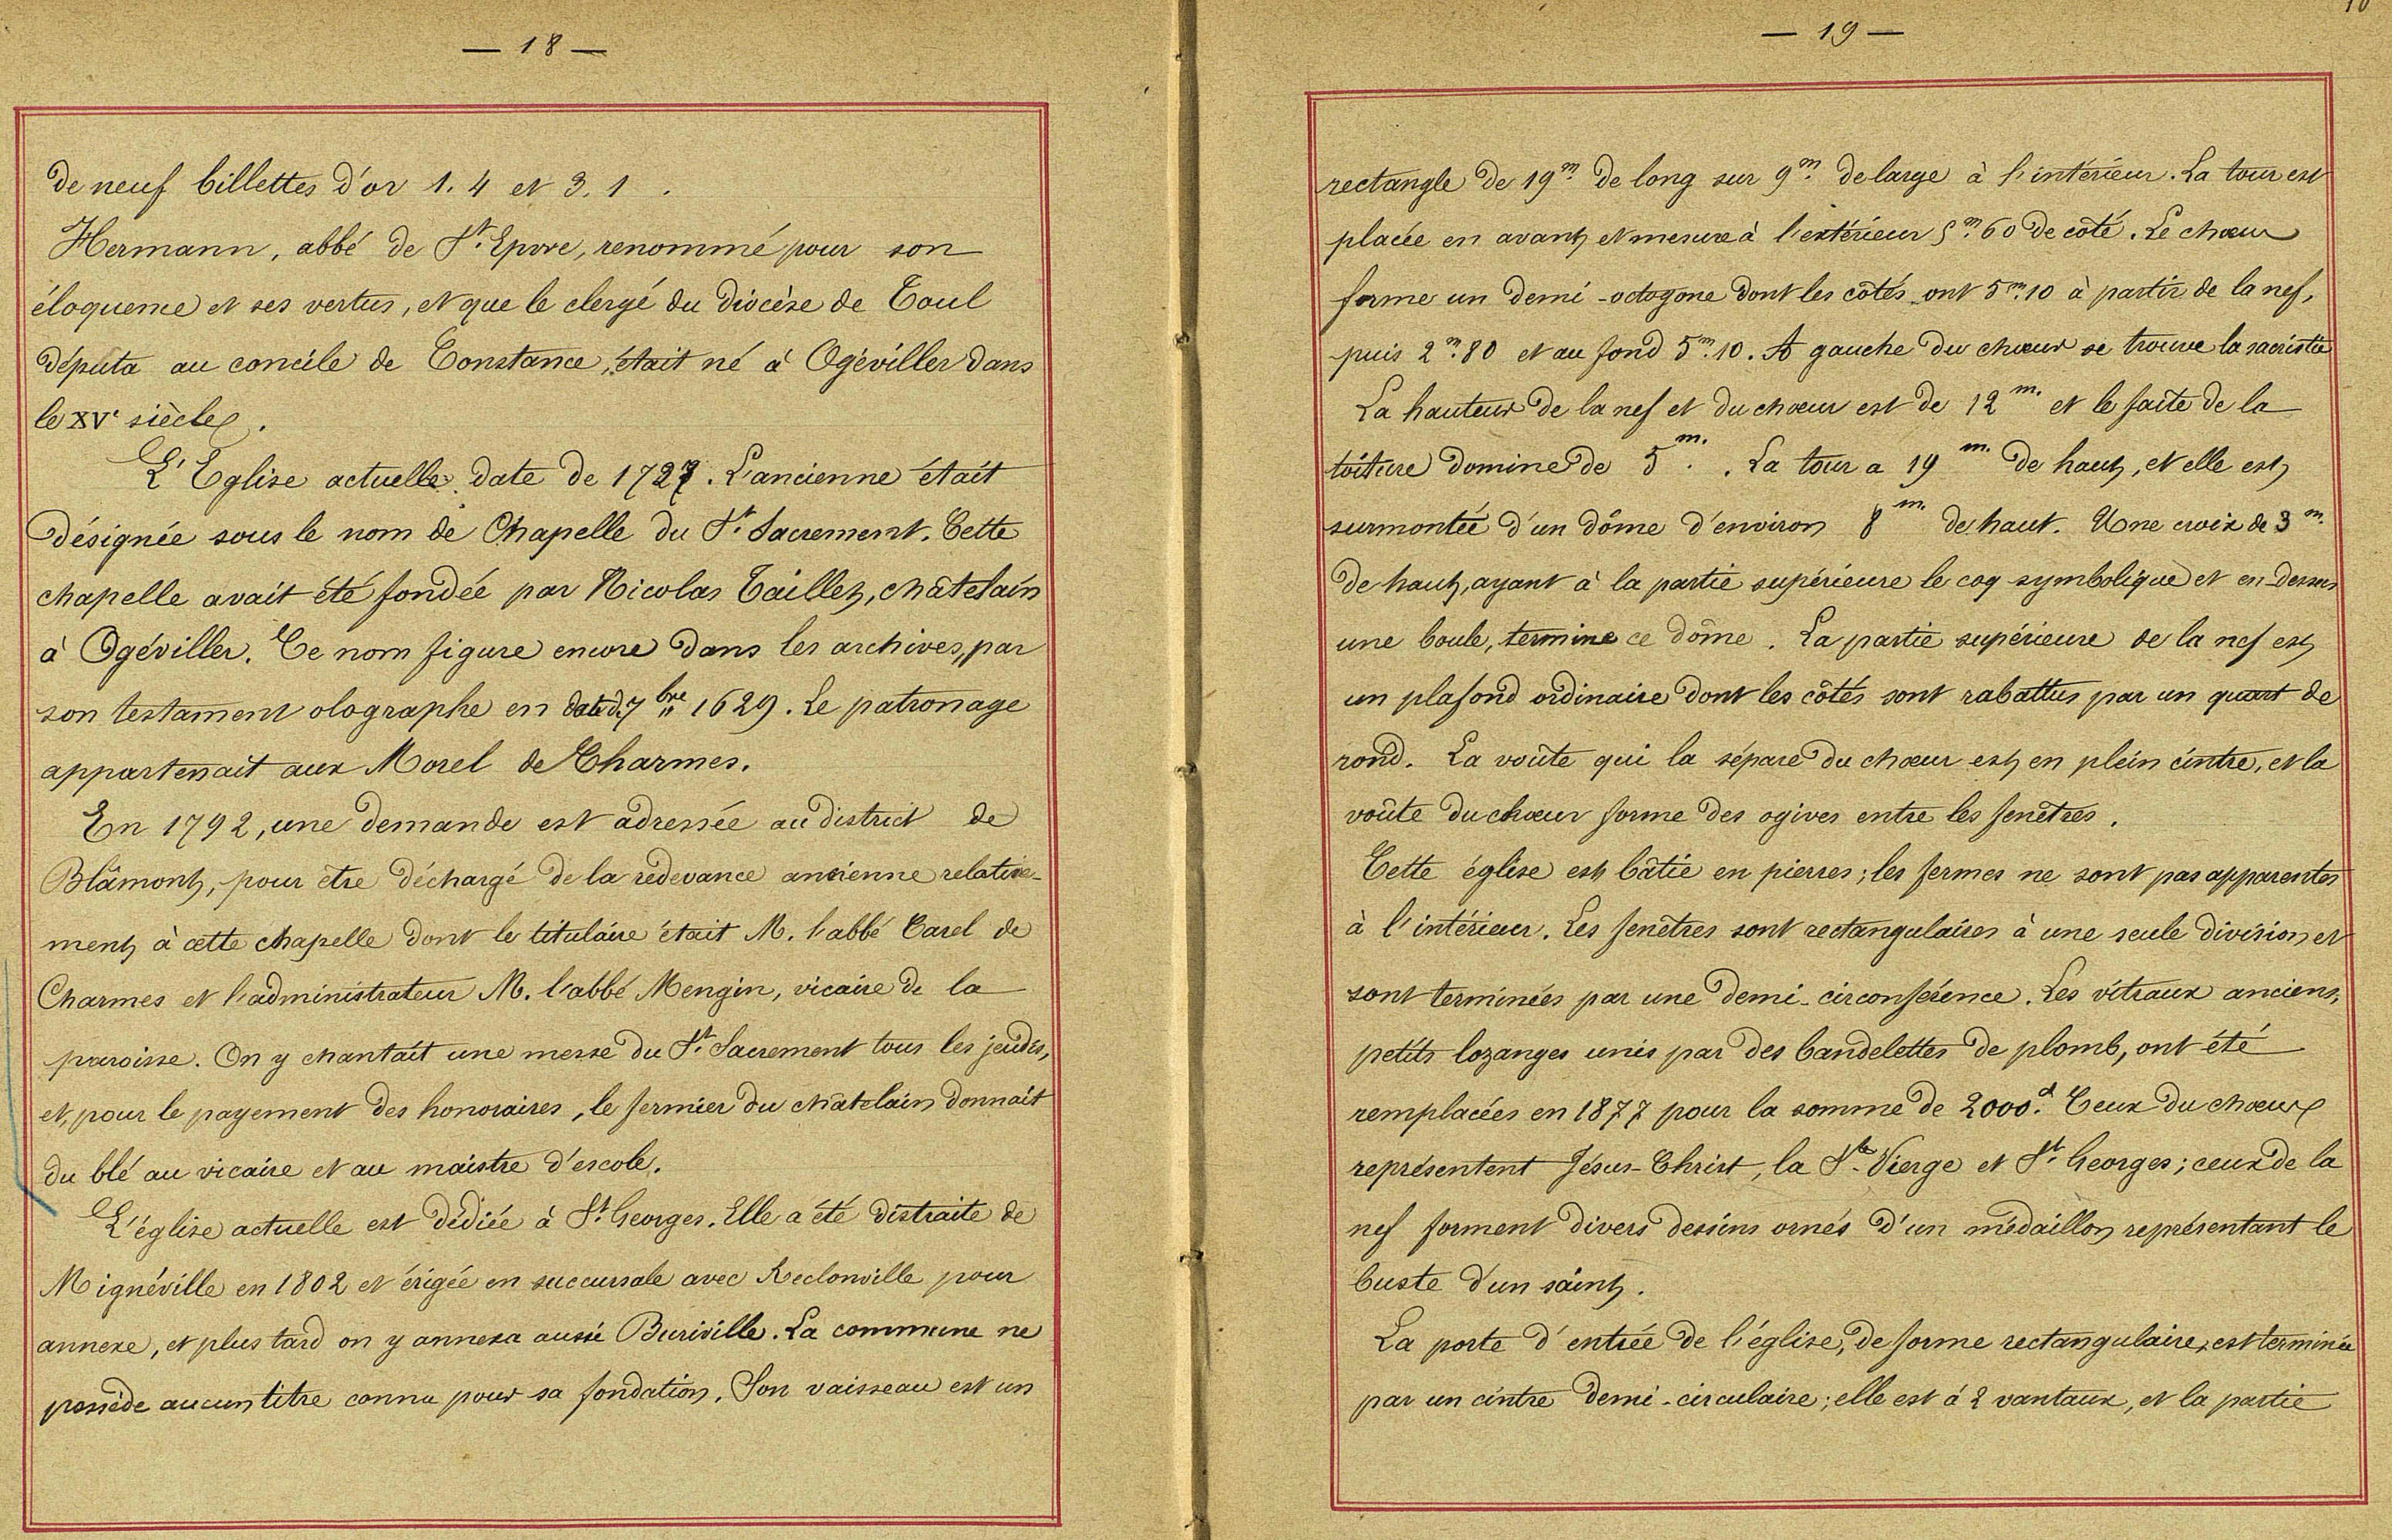 — 18 —
de neuf billettes d'or 1. 4 et 3. 1 .
Hermann, abbé de St. Epvre, renommé pour son
éloquence et ses vertus, et que le clergé du diocèse de Toul
députa au concile de Constance, était né à Ogéviller dans
le XVe siècle.
L'Eglise actuelle date de 1727. L'ancienne était
désignée sous le nom de Chapelle du St. Sacrement. Cette
chapelle avait été fondée par Nicolas Taillet, châtelain
à Ogéviller. Ce nom figure encore dans les archives, par
son testament olographe en date d. 7bre 1629. Le patronage
appartenait aux Morel de Charmes.
En 1792, une demande est adressée au district de
Blâmont, pour être déchargé de la redevance ancienne relative-
ment à cette chapelle dont le titulaire était M. l'abbé Carel de
Charmes et l'administrateur M. l'abbé Mengin, vicaire de la
paroisse. On y chantait une messe du St. Sacrement tous les jeudis,
et, pour le payement des honoraires, le fermier du châtelain donnait
du blé au vicaire et au maistre d'escole.
L'église actuelle est dédiée à St. Georges. Elle a été distraite de
Mignéville en 1802 et érigée en succursale avec Reclonville pour
annexe, et plus tard on y annexa aussi Buriville. La commune ne
possède aucun titre connu pour sa fondation. Son vaisseau est un
— 19 —
rectangle de 19m. de long sur 9m. de large à l'intérieur. La tour est
placée en avant et mesure à l'extérieur 5m.60 de côté. Le chœur
forme un demi-octogone dont les côtés ont 5m.10 à partir de la nef,
puis 2m.80 et au fond 5m.10. A gauche du chœur se trouve la sacristie
La hauteur de la nef et du chœur est de 12m. et le faîte de la
toiture domine de 5m. . La tour a 19m. de haut, et elle est
surmontée d'un dôme d'environ 8m. de haut. Une croix de 3m.
de haut, ayant à la partie supérieure le coq symbolique et en-dessus
une boule, termine ce dôme. La partie supérieure de la nef est
un plafond ordinaire dont les côtés sont rabattus par un quart de
rond. La voûte qui la sépare du chœur est en plein cintre, et la
voûte du chœur forme des ogives entre les fenêtres.
Cette église est bâtie en pierres; les fermes ne sont pas apparentes
à l'intérieur. Les fenêtres sont rectangulaires à une seule division et
sont terminées par une demi-circonférence. Les vitraux anciens,
petits lozanges unis par des bandelettes de plomb, ont été
remplacées en 1877 pour la somme de 2000f. Ceux du chœur
représentent Jésus-Christ, la Ste. Vierge et St. Georges; ceux de la
nef forment divers dessins ornés d'un médaillon représentant le
buste d'un saint.
La porte d'entrée de l'église, de forme rectangulaire, est terminée
par un cintre demi-circulaire; elle est à 2 vantaux, et la partie